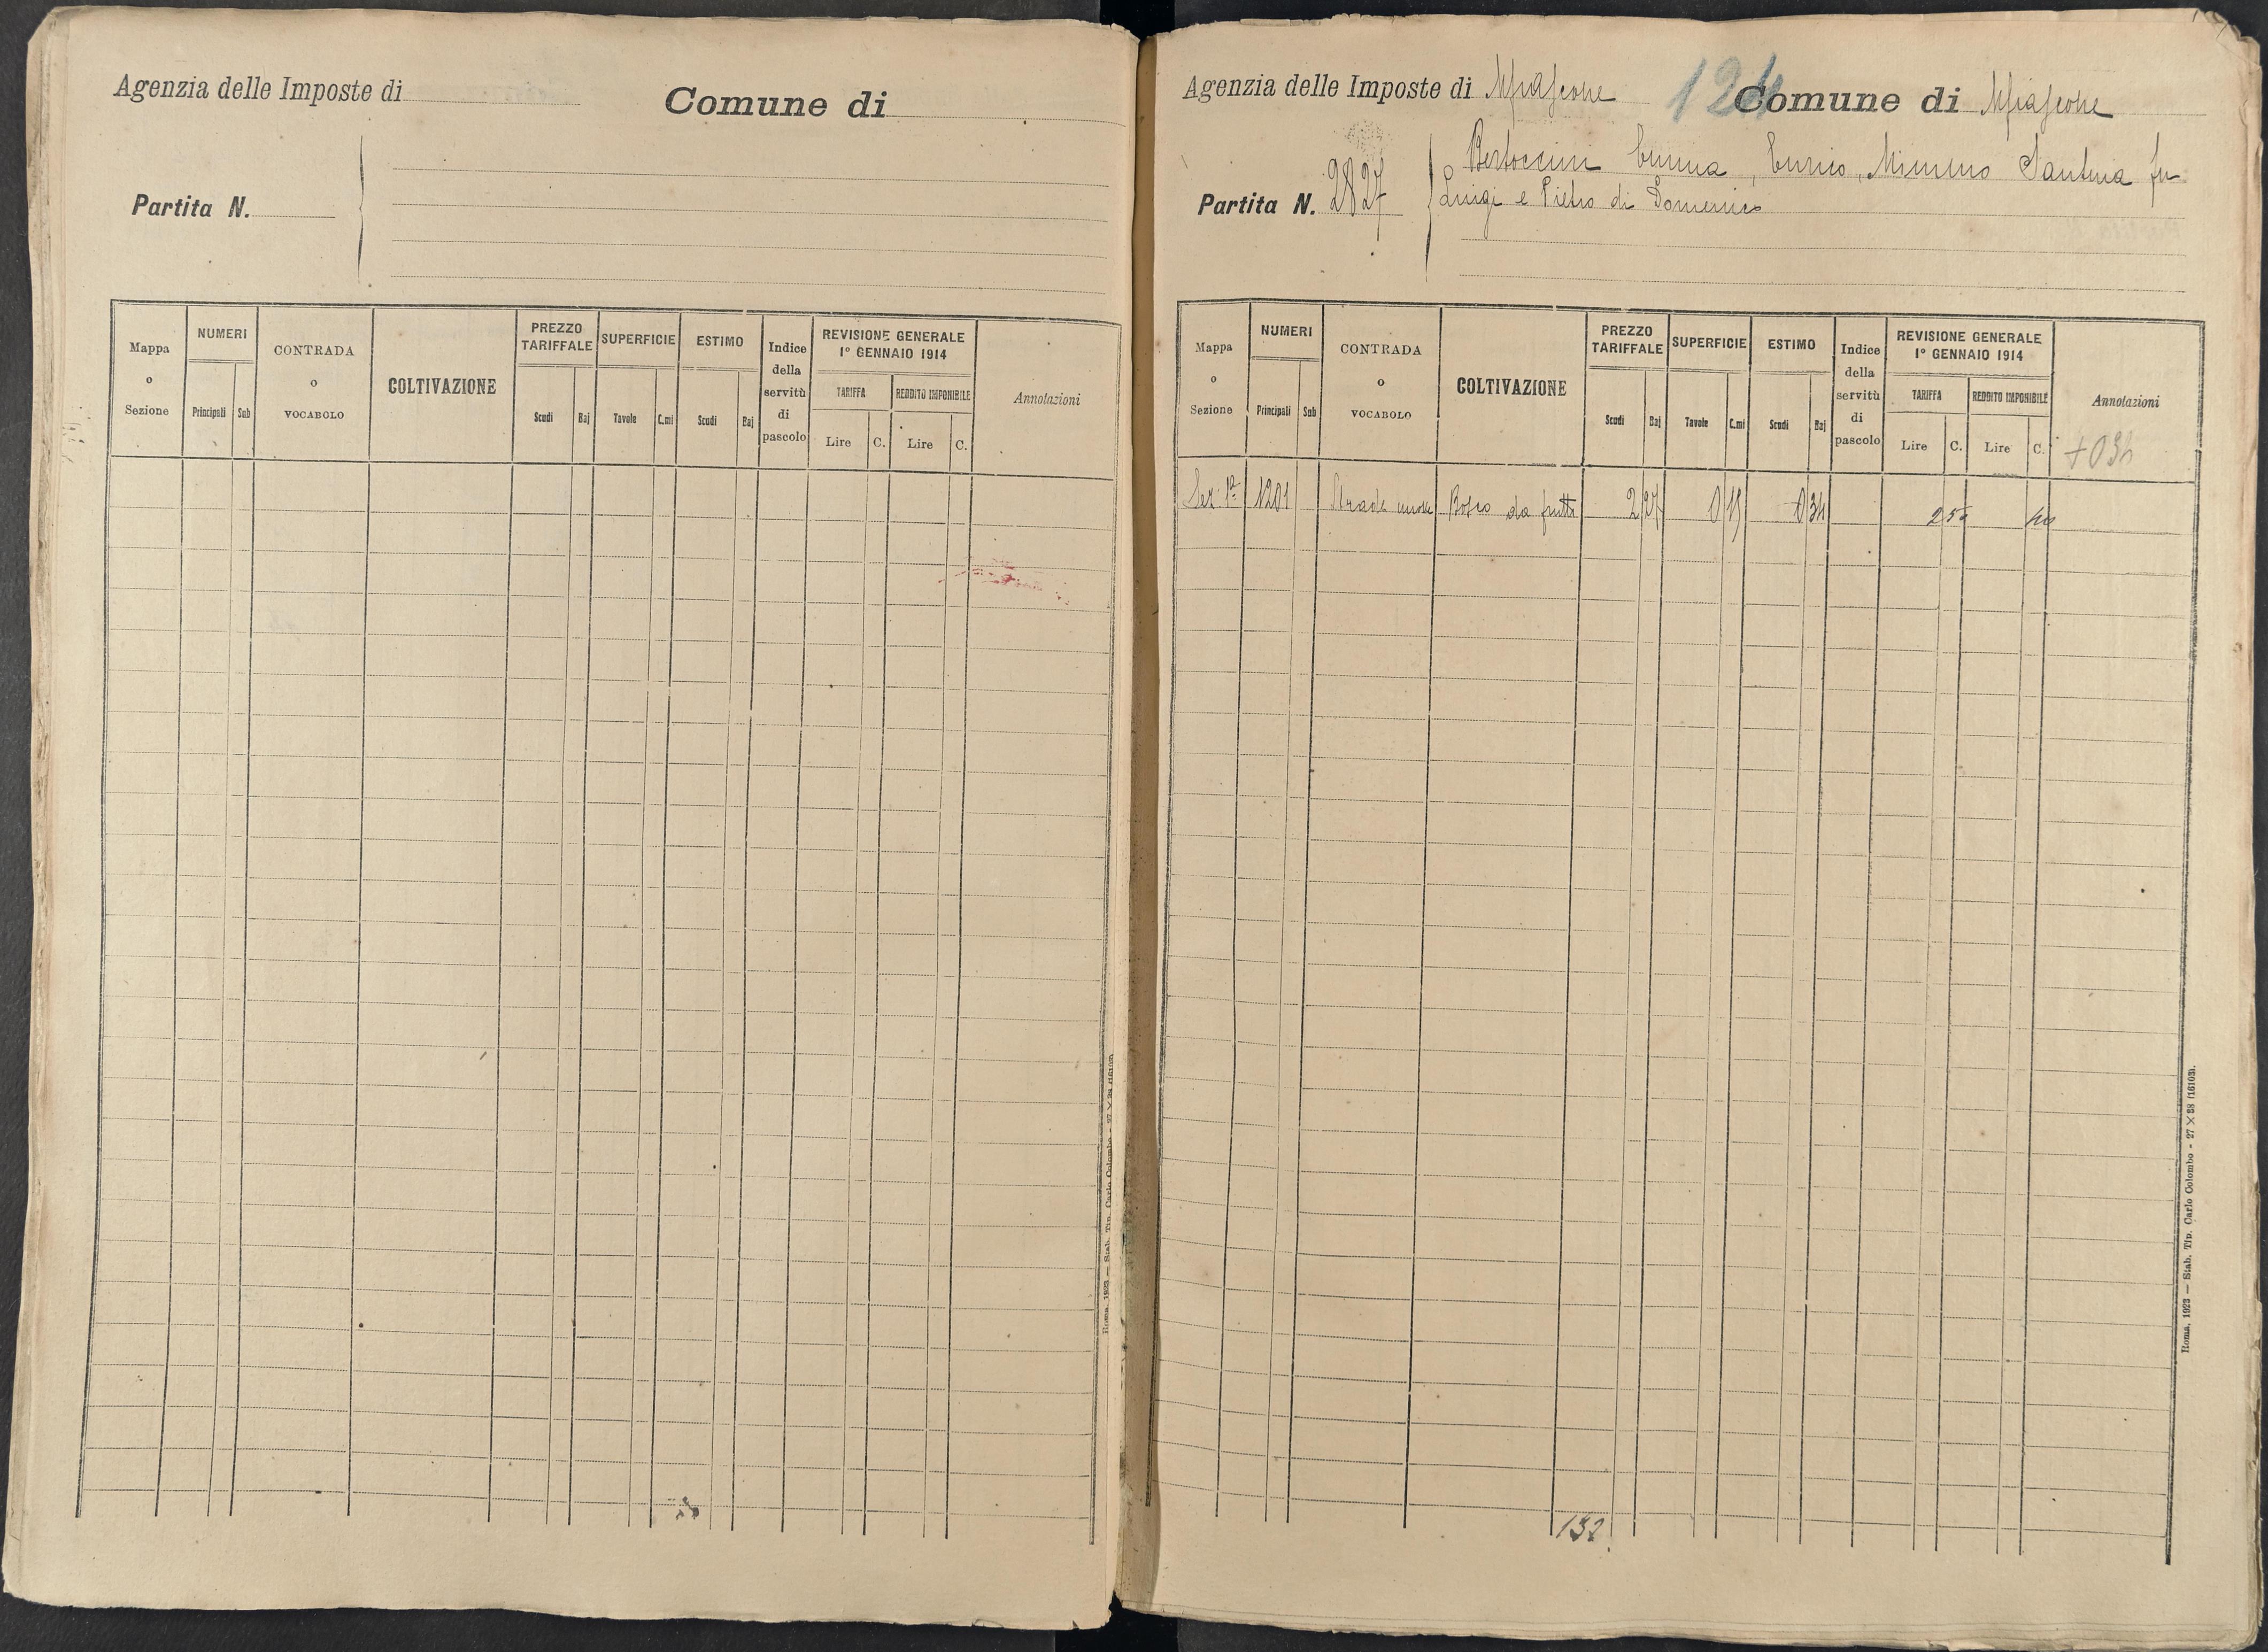 Agenzia delle Imposte di
Comune di
Partita N.
Mappa o Sezione
NUMERI
Principali
Sub
CONTRADA o VOCABOLO
COLTIVAZIONE
PREZZO TARIFFALE
Scudi
Baj
SUPERFICIE
Tavole
C.mi
ESTIMO
Scudi
Baj
Indice della servitù di pascolo
REVISIONE GENERALE
1° GENNAIO 1914
TARIFFA
Lire
C.
REDDITO IMPONIBILE
Lire
C.
Annotazioni
Roma, 1923 — Stab. Tip. Carlo Colombo - 27 × 38 (16103).
Agenzia delle Imposte di
124
Comune di
Partita N. 2827
Enrico, Mimmo Santina fu
Luigi e Pietro di Domenico
Mappa o Sezione
NUMERI
Principali
Sub
CONTRADA o VOCABOLO
COLTIVAZIONE
PREZZO TARIFFALE
Scudi
Baj
SUPERFICIE
Tavole
C.mi
ESTIMO
Scudi
Baj
Indice della servitù di pascolo
REVISIONE GENERALE
1° GENNAIO 1914
TARIFFA
Lire
C.
REDDITO IMPONIBILE
Lire
C.
Annotazioni
+034
Sez. 1ª 1201 Bosco da frutto 2 27 0 15 0 34 2 50 40
132
Roma, 1923 — Stab. Tip. Carlo Colombo - 27 × 38 (16103).